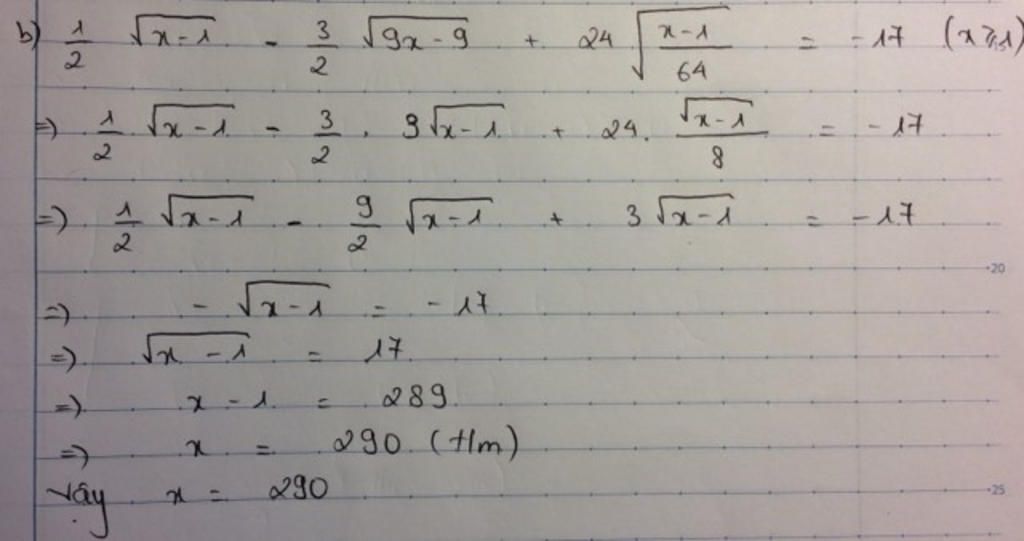 b) 1/2 √(x-1) - 3/2 √(9x-9) + 24 √((x-1)/64) = -17 (x ≥ 1)
=) 1/2 √(x-1) - 3/2 . 3√(x-1) + 24. √(x-1)/8 = -17
=) 1/2 √(x-1) - 9/2 √(x-1) + 3√(x-1) = -17
=) -√(x-1) = -17
=) √(x-1) = 17
=) x - 1 = 289
=) x = 290 (t/m)
20
Vậy x = 290
25